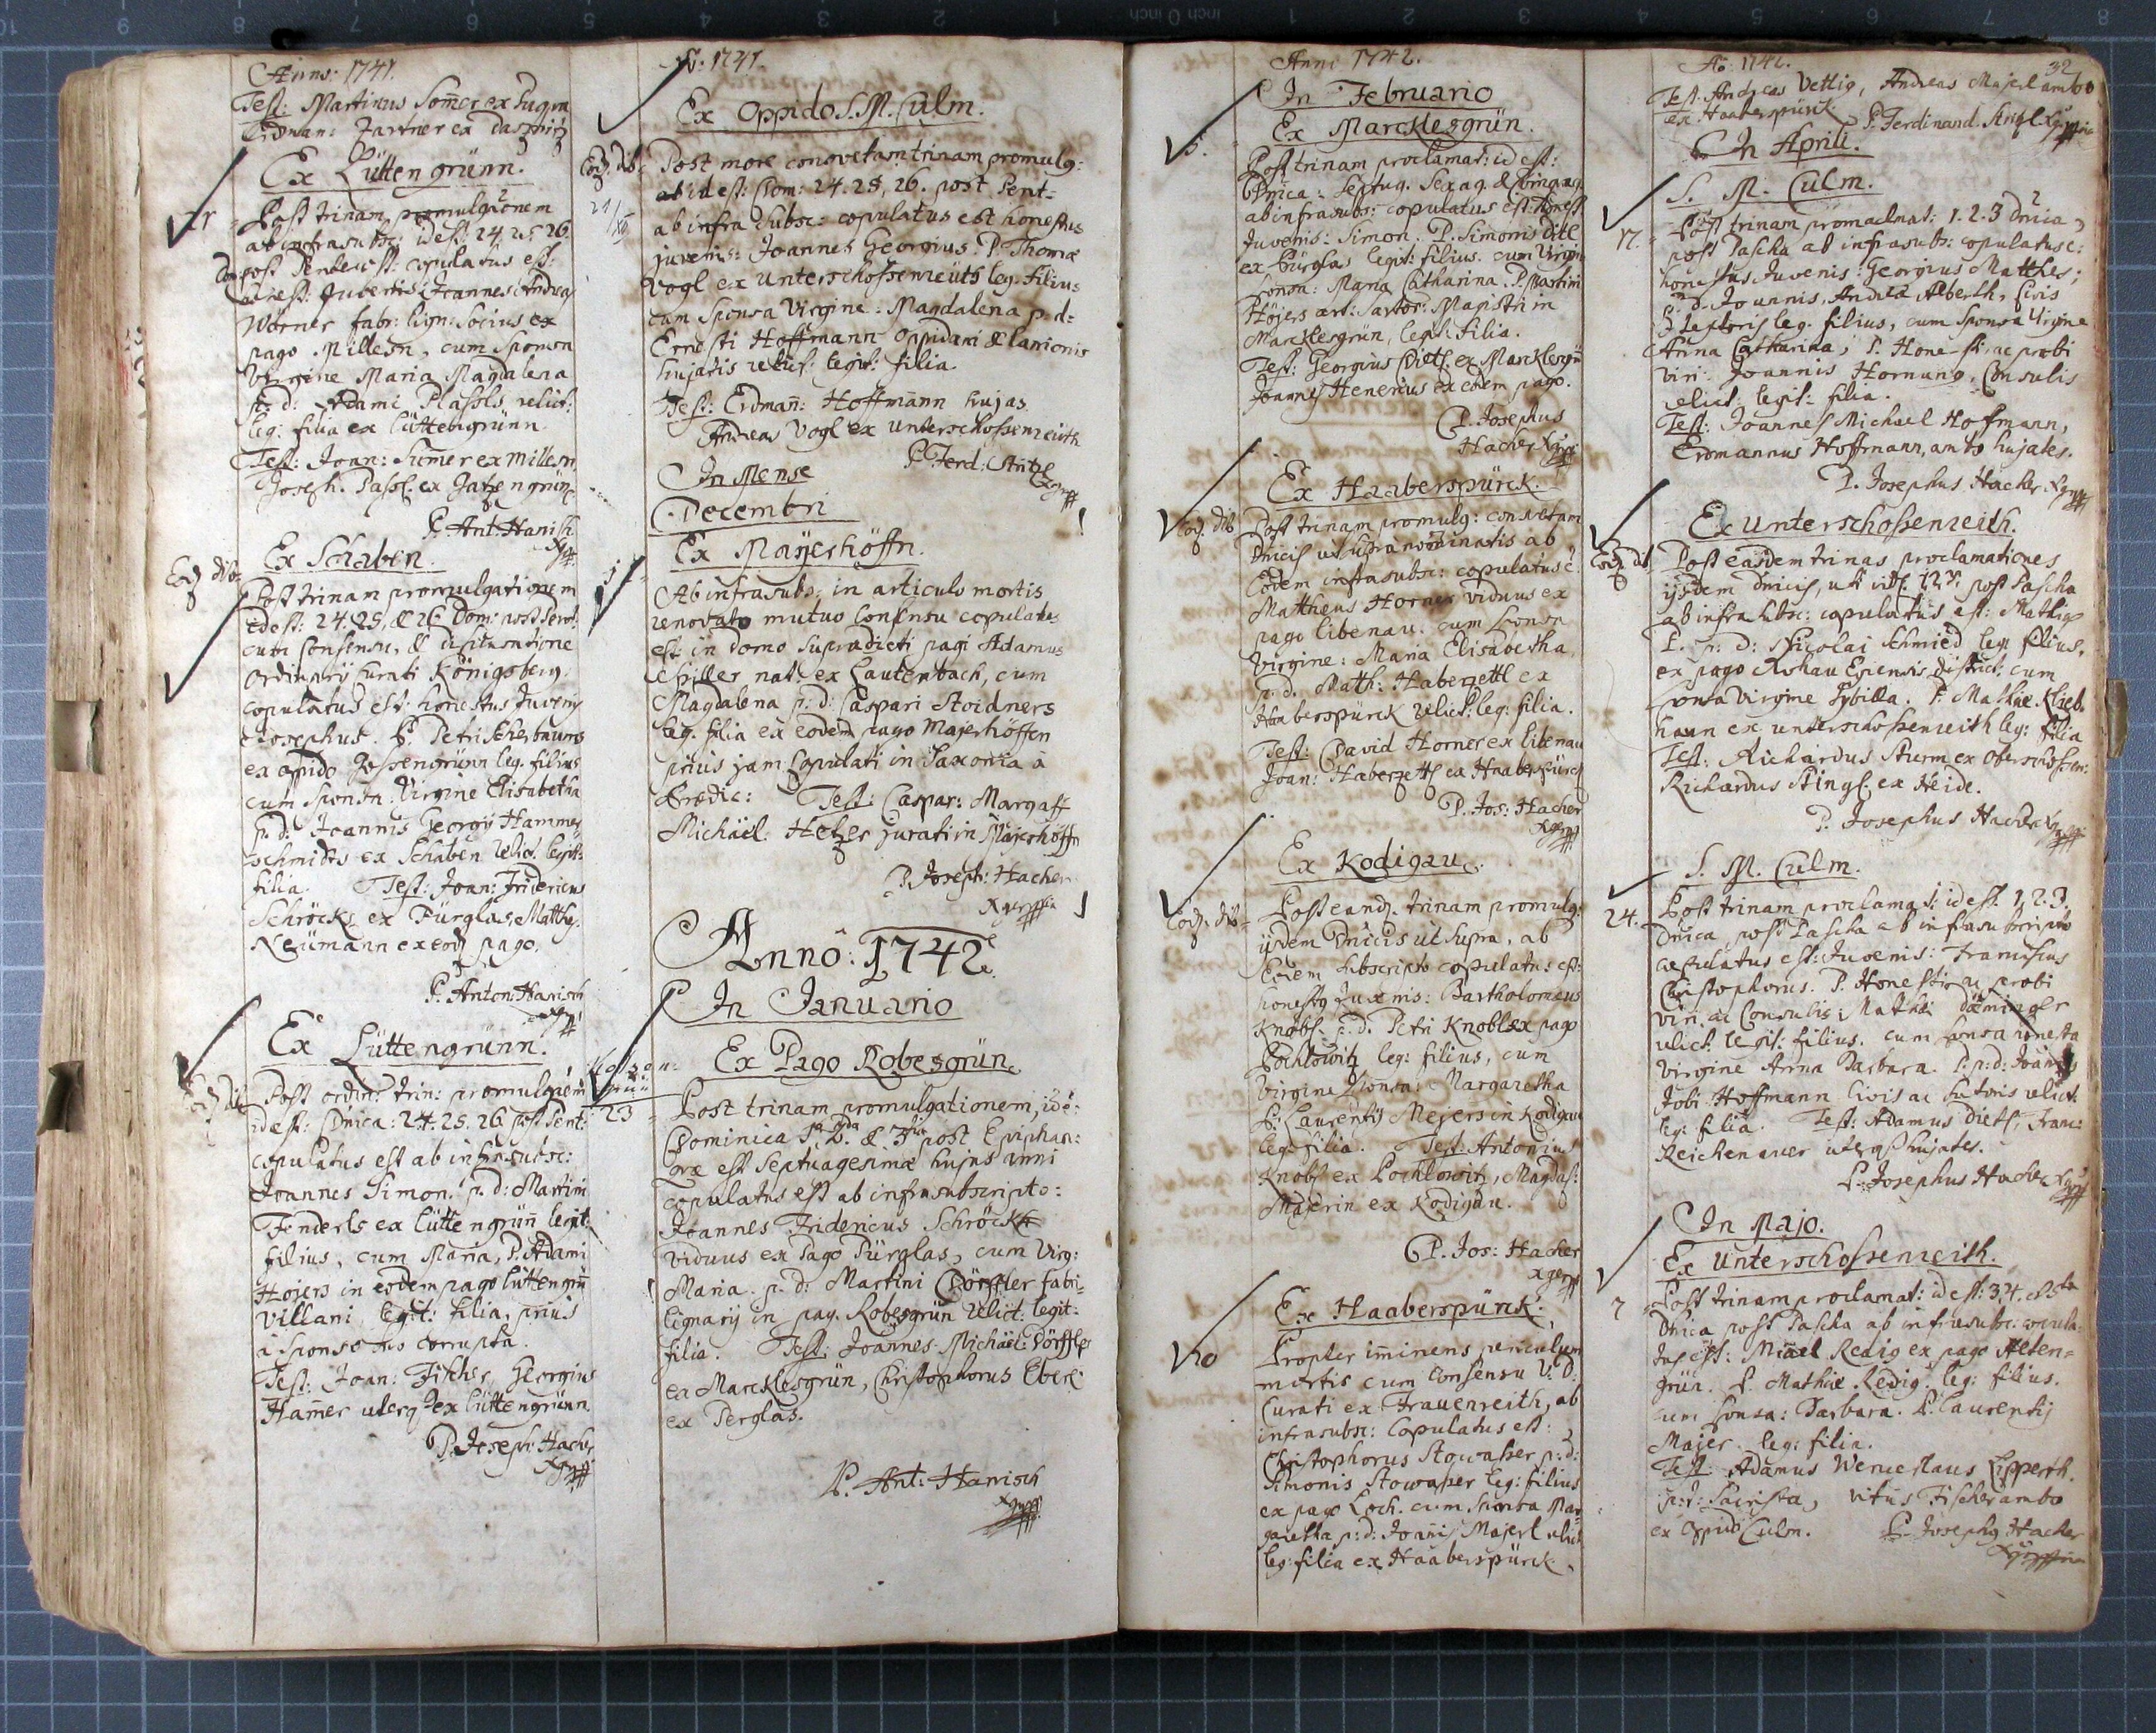 Anno: 1741.
Test: Martinus Somer ex
Erdman: Gartner ex
Ex Lüttengrünn.
Post trinam promulgationem
ab infrasubsc: id est: 24. 25. 26.
post Pentecost: copulatus est:
honest: Juvenis: Joannes Andreas
Wörner fabr: lign: Socius ex
pago Millesn, cum Sponsa
Virgine Maria Magdalena
p: d: Adami Plassls relict:
leg: filia ex Lüttengrünn.
Test: Joan: Sumer ex Millesn,
Joseph. Passl: ex
P. Ant: Hanisch
Eod. die
Ex Schaben.
Post trinam promulgationem
id est: 24. 25. & 26. Dom: post Pent:
cum Consensu, &
Ordinarij Curati Königsberg:
copulatus est: honestus Juvenis
Josephus. P. Petri Scherbaums
ex oppido Gossengrünn leg. filius
cum Sponsa: Virgine Elisabetha
p: d: Joannis Georgij Hammer
schmidts ex Schaben relict. legit:
filia. Test: Joan: Fridericus
Schröck ex Pürglas, Matthy:
Neümann ex eod. pago.
P. Anton: Hanisch
Ex Lüttengrünn.
Eod. die
Post ordin: trin: promulgnem
id est: Dnica: 24. 25. 26 post Pent:
copulatus est ab infrasubsc:
Joannes Simon. p: d: Martini
Fenderls ex Lüttengrün legit:
filius, cum Maria, P. Adami
Hojers in eodem pago Lüttengrün
Villani legit: filia, prius
à sponso suo corrupta.
Test: Joan: Fischer, Georgius
Hamer uterq. ex Lüttengrünn
P. Joseph: Hacher
Ao: 1741.
Ex Oppido S. M. Culm.
Eod. die
21/XI
Post more consvetam trinam promulg:
id est: Dom: 24. 25, 26. post Pent:
ab infra Subsc: copulatus est honestus
juvenis: Joannes Georgius. P. Thomæ
Vogl ex Unterschossenreüth leg. filius
cum Sponsa Virgine: Magdalena p: d:
Ernesti Hoffmann Oppidani & lanionis
hujatis relict: legit: filia.
Test: Erdmañ: Hoffmann hujas
Andreas Vogl ex Unterschossenreüth
P. Ferd: Stingl
In Mense
Decembri
Ex Mayerhöffn.
Ab infrasubs: in articulo mortis
renovato mutuo Consensu copulatus
est in domo supradicti pagi Adamus
Schiller nat: ex Lautenbach, cum
Magdalena p: d: Caspari Stoidners
leg. filia ex eodem pago Majerhöffen
prius jam copulati in Saxonia à
Prædic: Test: Caspar: Margaff
Michäel: Hetzer jurati in Majerhöffn
P. Joseph: Hacher
Anno: 1742
In Januario
Ex Pago Robesgrün.
23
Post trinam promulgationem, id e:
Dominica 1a 2da & 3tia post Epiphan:
quæ est Septuagesimæ hujus anni
copulatus est ab infrasubscripto:
Joannes Fridericus Schröckh
viduus ex Pago Pürglas, cum Virg:
Maria. p: d: Martini Dörffler fabri-
lignarij in pag. Robesgrün relict: legit:
filia. Test: Joannes Michäel Dörffler
ex Marcklesgrün, Christophorus Eberl
ex Perglas.
P. Ant: Hanisch
Anni 1742.
In Februario
Ex Marcklesgrün.
5.
Post trinam proclamat: id est:
Dnica: Septug. Sexag. & Quinquag
ab infrasubs: copulatus est: honest
Juvenis: Simon. P. Simonis Ditl
ex Pürglas legit: filius. cum Virgin
sponsa: Maria Catharina. P. Martini
Höjers art: Sartor: Magistri in
Marcklesgrün, legit: filia.
Test: Georgius Dietl ex Marcklesgrün
Joannes Henerius ex eodem pago.
P. Josephus
Hacher
Ex Haaberspürck.
Eod. die
Post trinam promulg: consvetam
Dnicis ut supra nominatis ab
Eodem infrasubsc: copulatus e:
Mattheus Horner viduus ex
pago Libenau. cum Sponsa
Virgine: Maria Elisabetha
p. d. Math: Haberzettl ex
Haaberspürck relict: leg: filia.
Test: David Horner ex Libenau
Joan: Haberzettl ex Haaberspürck
P. Jos: Hacher
Ex Kodigau.
Eod. die
Post eand. trinam promulg:
ijsdem Dnicis ut supra, ab
Eodem Subscripto copulatus est:
honestus Juvenis: Bartholomeus
Knobl. p: d: Petri Knobl ex pago
Pochlowitz leg: filius, cum
Virgine Sponsa: Margaretha
P. Laurentij Mejers in Kodigau
leg: filia. Test: Antonius
Knobl ex Pochlowitz, Magdal:
Majerin ex Kodigau.
P. Jos: Hacher
Ex Haaberspürck.
20
Propter iminens periculum
mortis cum Consensu V: D:
Curati ex Frauenreith, ab
infrasubsc: Copulatus est:
Christophorus Stowasser p: d:
Simonis Stowasser leg: filius
ex pago Loch. cum Sponsa Mar-
garetha p: d: Joannis Majerl relict
leg: filia ex Haaberspürck.
Ao: 1742.
32
Test: Andreas Vettig, Andreas Majerl ambo
ex Haaberspürck.
P. Ferdinand. Stingl
In Aprili.
S. M. Culm.
17.
Post trinam proclamat: 1. 2. 3 dnica
post Pascha ab infrasubs: copulatus e:
honestus Juvenis: Georgius Matthes;
P: d. Joannis Andreæ Alberth, Civis
leg. filius, cum Sponsa Virgine
Anna Catharina; P. Honesti ac probi
viri: Joannis Hornung, Consulis
relict: legit: filia.
Test: Joannes Michael Hoffmann,
Erdmannus Hoffmann, ambo hujates.
P. Josephus Hacher
Ex Unterschossenreith.
Eod. die
Post easdem trinas proclamationes
ijsdem dnicis, post Pascha
ab infra subsc: copulatus est: Mathias
P. p: d: Nicolai Schmied leg: filius,
ex pago Egrensis district: cum
sponsa Virgine Sybilla. P. Mathiæ Klieb-
hann ex unterschossenreith leg: filia
Test: Richardus Sturm ex Oberschossen:
Richardus Stingl ex Heide.
P. Josephus Hacher
S. M. Culm.
24.
Post trinam proclamat: id est. 1. 2. 3.
Dnica post Pascha ab infrasubscripto
copulatus est: Juvenis: Franciscus
Christophorus. P. Honesti ac probi
viri ac Consulis: Mathæi Däminger
relict: legit: filius. cum sponsa honesta
virgine Anna Barbara. P. p: d: Joannis
Jobi Hoffmann Civis ac Sutoris relict:
leg: filia. Test: Adamus Dietl, Franc:
Reichenauer uterq. hujates.
P. Josephus Hacher
In Majo.
Ex Unterschossenreith.
7
Post trinam proclamat: id est: 3. 4. & 5ta
Dnica post Pascha ab infrasubsc: copula-
tus est: Michael Redig ex pago Alten-
grün. P. Mathiæ Redig. leg: filius.
cum Sponsa: Barbara. P. Laurentij
Majer leg: filia.
Test: Adamus Wenceslaus Lipperth.
Sacrista, Vitus Fischer ambo
ex oppido Culm. P. Josephus Hacher